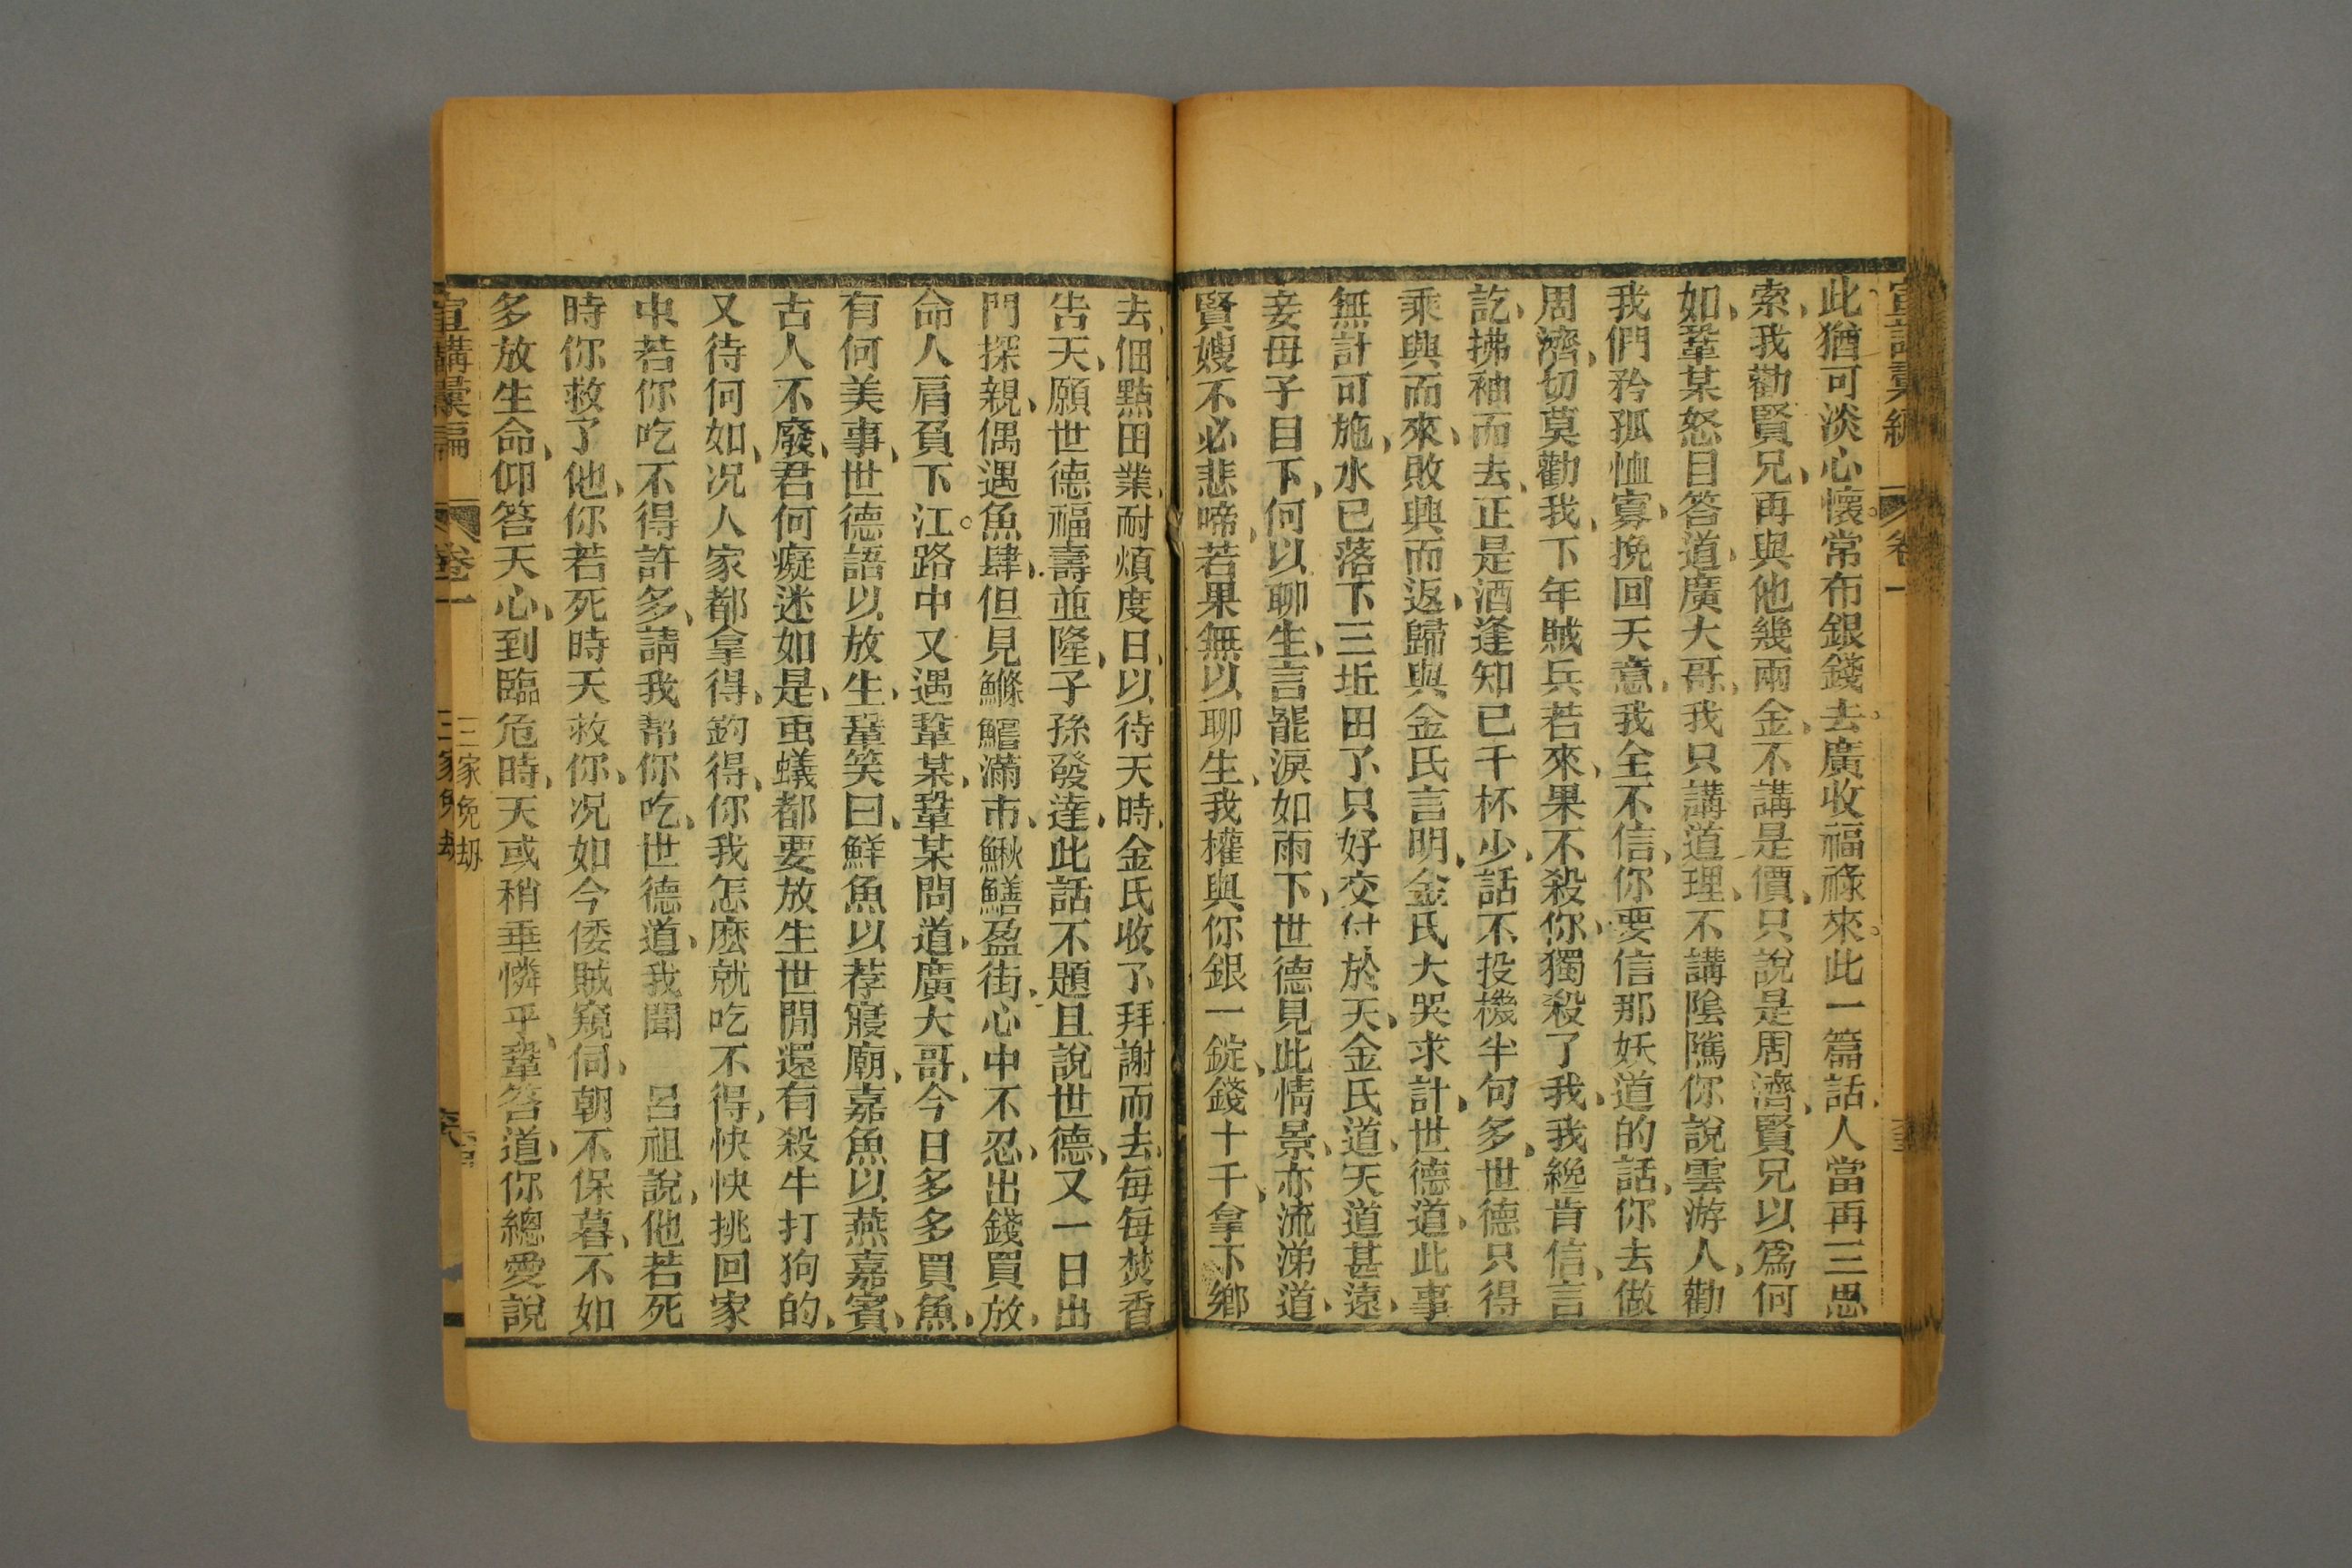 宣講彙編 卷一
此猶可淡心懷。常布銀錢去。廣收福祿來。此一篇話、人當再三思
索、我勸賢兄、再與他幾兩金、不講是價、只說是周濟、賢兄以爲何
如、鞏某怒目答道、廣大哥、我只講道理、不講陰隲、你說雲游人、勸
我們矜孤恤寡、挽回天意、我全不信、你要信那妖道的話、你去做
周濟、切莫勸我、下年賊兵若來、果不殺你、獨殺了我、我纔肯信、言
訖、拂袖而去、正是酒逢知已千杯少、話不投機半句多、世德只得
乘興而來、敗興而返、歸與金氏言明、金氏大哭求計、世德道、此事
無計可施、水已落下三坵田了、只好交付於天、金氏道、天道甚遠、
妾母子目下、何以聊生、言罷淚如雨下、世德見此情景、亦流涕道、
賢嫂不必悲啼、若果無以聊生、我權與你銀一錠、錢十千、拿下鄉
去佃點田業、耐煩度日、以待天時、金氏收了拜謝而去、每每焚香
告天、願世德福壽並隆、子孫發達、此話不題、且說世德、又一日出
門探親、偶遇魚肆、但見鰷鱨滿市、鰍鱔盈街、心中不忍、出錢買放、
命人肩負下江。路中又遇鞏某、鞏某問道、廣大哥、今日多多買魚、
有何美事、世德語以放生、鞏笑曰、鮮魚以荐寢廟、嘉魚以燕嘉賓、
古人不廢、君何癡迷如是、虫蟻都要放生、世間還有殺牛打狗的、
又待何如、况人家都拿得、釣得、你我怎麽就吃不得、快快挑回家
中、若你吃不得許多、請我帮你吃、世德道、我聞 呂祖說、他若死
時你救了他、你若死時天救你、况如今倭賊窺伺、朝不保暮、不如
多放生命、仰答天心、到臨危時、天或稍垂憐乎、鞏答道、你總愛說
宣講彙編 卷一 三家免劫
三家免劫